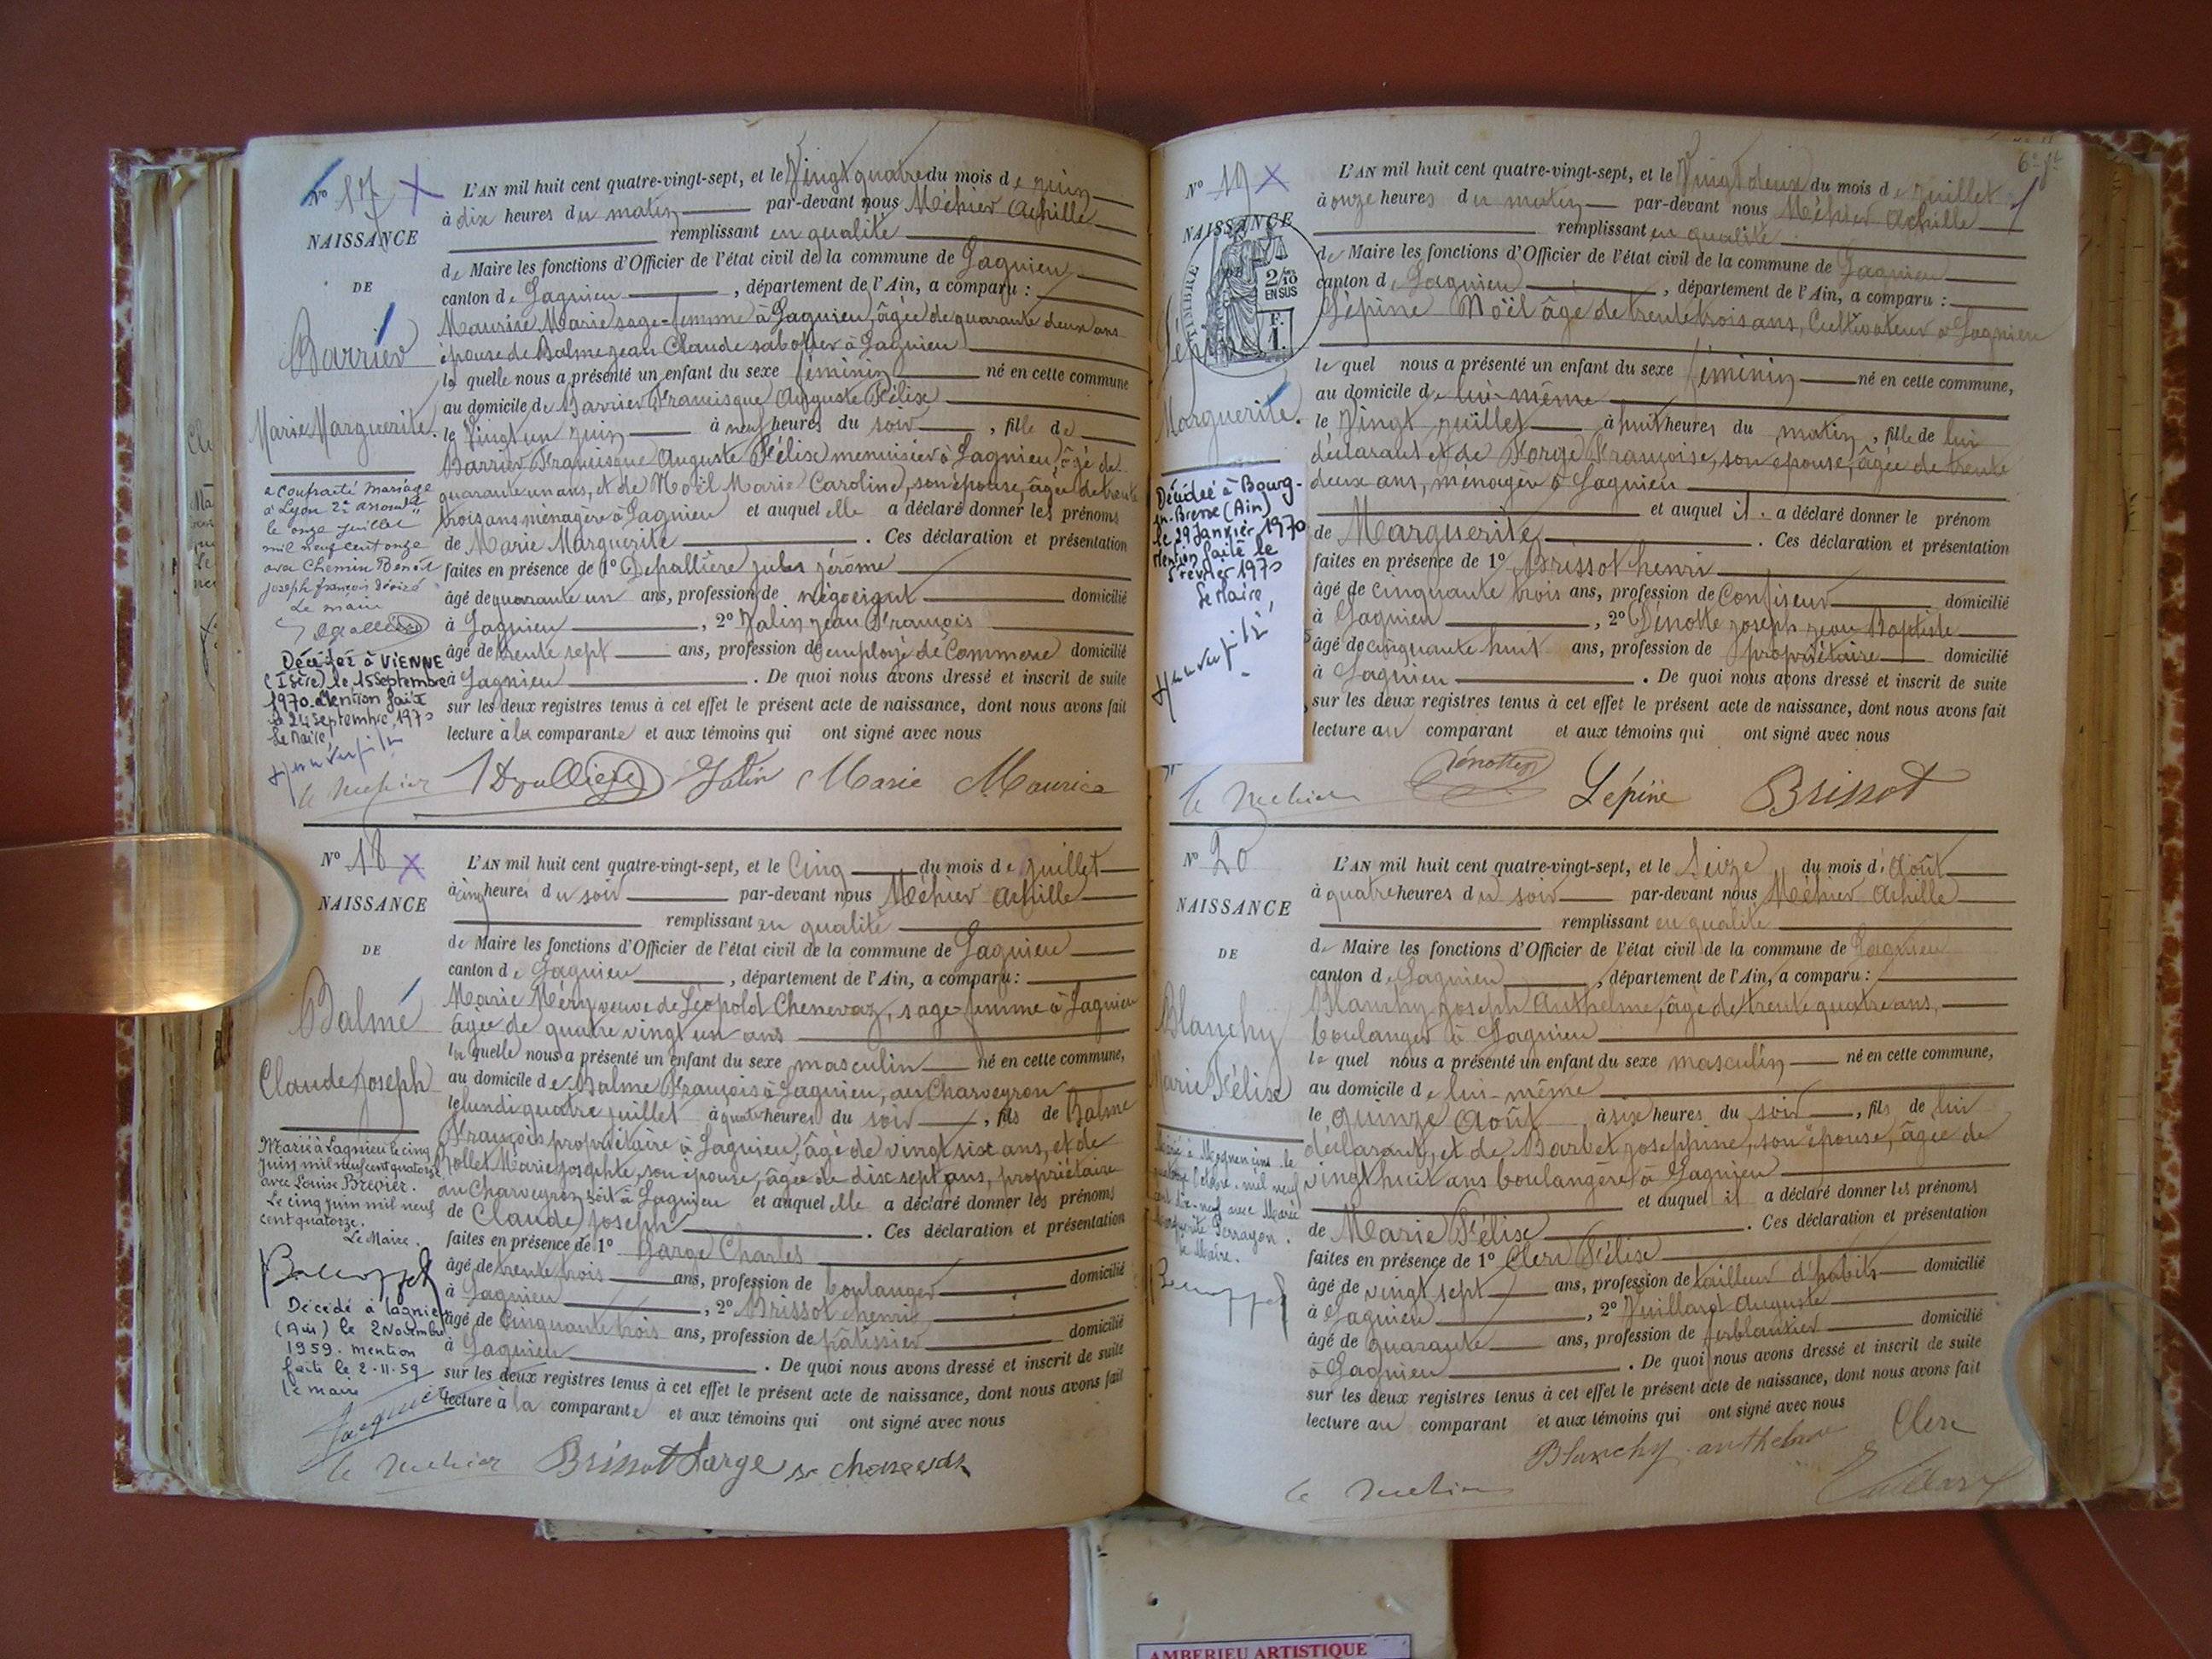 Nº 17 X
NAISSANCE
DE
Barrier
Marie Marguerite.
a contracté mariage
à Lyon 2e
le onze Juillet
mil neuf cent onze
avec Chemin Benoît
Joseph françois
Le maire
Décédée à VIENNE
(Isère) le 15 Septembre
1970. Mention faite
le 24 Septembre 1970
Le Maire,
L'AN mil huit cent quatre-vingt-sept, et le Vingt quatre du mois de juin
à dix heures du matin par-devant nous Méhier Achille
remplissant en qualité
de Maire les fonctions d'Officier de l'état civil de la commune de Lagnieu
canton de Lagnieu , département de l'Ain, a comparu :
Maurice Marie sage-femme à Lagnieu, âgée de quarante deux ans
épouse de Balme jean Claude sabotier à Lagnieu
la quelle nous a présenté un enfant du sexe féminin né en cette commune
au domicile de Barrier Francisque Auguste Félix
le Vingt un juin à neuf heures du soir , fille de
Barrier Francisque Auguste Félix menuisier à Lagnieu, âgé de
quarante un ans, et de Noël Marie Caroline, son épouse, âgée de trente
trois ans ménagère à Lagnieu et auquel elle a déclaré donner les prénoms
de Marie Marguerite . Ces déclaration et présentation
faites en présence de 1º Depallière jules jérôme
âgé de quarante un ans, profession de négociant domicilié
à Lagnieu , 2º Jalin jean François
âgé de trente sept ans, profession d'employé de Commerce domicilié
à Lagnieu . De quoi nous avons dressé et inscrit de suite
sur les deux registres tenus à cet effet le présent acte de naissance, dont nous avons fait
lecture à la comparante et aux témoins qui ont signé avec nous
Jalin Marie Maurice
Nº 18 X
NAISSANCE
DE
Balme
Claude Joseph
Marié à Lagnieu le cinq
Juin mil neuf cent quatorze
avec Louise Brevier.
Le cinq Juin mil neuf
cent quatorze.
Le Maire.
Décédé à Lagnieu
(Ain) le 2 Novembre
1959. mention
faite le 2-11-59
Le maire
L'AN mil huit cent quatre-vingt-sept, et le Cinq du mois de juillet
à cinq heures du soir par-devant nous Méhier Achille
remplissant en qualité
de Maire les fonctions d'Officier de l'état civil de la commune de Lagnieu
canton de Lagnieu , département de l'Ain, a comparu :
Marie Méry veuve de Léopold Chenevaz, sage-femme à Lagnieu
âgée de quatre vingt un ans
la quelle nous a présenté un enfant du sexe masculin né en cette commune,
au domicile de Balme François à Lagnieu, au Charveyron
le lundi quatre juillet à quatre heures du soir , fils de Balme
François propriétaire à Lagnieu, âgé de vingt six ans, et de
Rollet Marie josephte, son épouse, âgée de dix sept ans, propriétaire
au Charveyron soit à Lagnieu et auquel elle a déclaré donner les prénoms
de Claude Joseph . Ces déclaration et présentation
faites en présence de 1º Large Charles
âgé de trente trois ans, profession de boulanger domicilié
à Lagnieu , 2º Brissot henri
âgé de Cinquante trois ans, profession de pâtissier domicilié
à Lagnieu . De quoi nous avons dressé et inscrit de suite
sur les deux registres tenus à cet effet le présent acte de naissance, dont nous avons fait
lecture à la comparante et aux témoins qui ont signé avec nous
Brissot Large
6e
Nº 19 X
NAISSANCE
TIMBRE
2/10
EN SUS
F.
1.
Marguerite.
Décédée à Bourg-
en-Bresse (Ain)
le 29 Janvier 1970
Mention faite le
Février 1970
Le Maire,
L'AN mil huit cent quatre-vingt-sept, et le Vingt deux du mois de juillet
à onze heures du matin par-devant nous Méhier Achille
remplissant en qualité
de Maire les fonctions d'Officier de l'état civil de la commune de Lagnieu
canton de Lagnieu , département de l'Ain, a comparu :
Lépine Noël âgé de trente trois ans, Cultivateur à Lagnieu
le quel nous a présenté un enfant du sexe féminin né en cette commune,
au domicile de lui-même
le Vingt juillet à huit heures du matin , fille de lui
déclarant et de Forge Françoise, son épouse, âgée de trente
deux ans, ménagère à Lagnieu
et auquel il a déclaré donner le prénom
de Marguerite . Ces déclaration et présentation
faites en présence de 1º Brissot henri
âgé de cinquante trois ans, profession de Confiseur domicilié
à Lagnieu , 2º Dénotte joseph jean Baptiste
âgé de cinquante huit ans, profession de propriétaire domicilié
à Lagnieu . De quoi nous avons dressé et inscrit de suite
sur les deux registres tenus à cet effet le présent acte de naissance, dont nous avons fait
lecture au comparant et aux témoins qui ont signé avec nous
Lépine Brissot
Nº 20
NAISSANCE
DE
Blanchy
Marie Félix
L'AN mil huit cent quatre-vingt-sept, et le Seize du mois d'Août
à quatre heures du soir par-devant nous Méhier Achille
remplissant en qualité
de Maire les fonctions d'Officier de l'état civil de la commune de Lagnieu
canton de Lagnieu , département de l'Ain, a comparu :
Blanchy joseph Anthelme, âgé de trente quatre ans,
boulanger à Lagnieu
le quel nous a présenté un enfant du sexe masculin né en cette commune,
au domicile de lui-même
le quinze Août à six heures du soir , fils de lui
déclarant, et de Barbet josephine, son épouse, âgée de
vingt huit ans boulangère à Lagnieu
et auquel il a déclaré donner les prénoms
de Marie Félix . Ces déclaration et présentation
faites en présence de 1º Clerc Félix
âgé de vingt sept ans, profession de tailleur d'habits domicilié
à Lagnieu , 2º Juillard Auguste
âgé de quarante ans, profession de ferblantier domicilié
à Lagnieu . De quoi nous avons dressé et inscrit de suite
sur les deux registres tenus à cet effet le présent acte de naissance, dont nous avons fait
lecture au comparant et aux témoins qui ont signé avec nous
Blanchy anthelme Clerc
AMBERIEU ARTISTIQUE